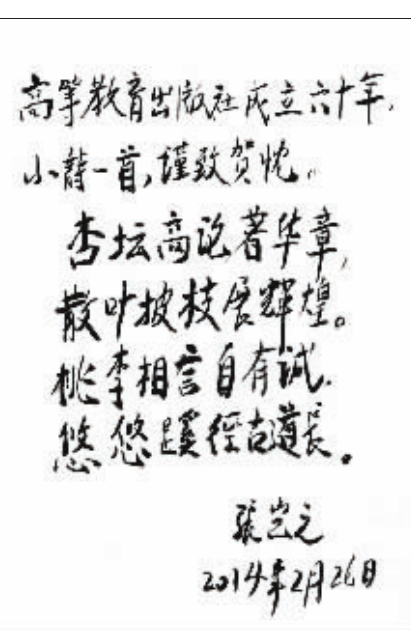 高等教育出版社成立六十年，
小詩一首，謹致贺忱。
杏坛高论著华章，
散叶披枝展辉煌。
桃李相言自有诚，
悠悠蹊徑古道长。
張岂之
2014年2月26日